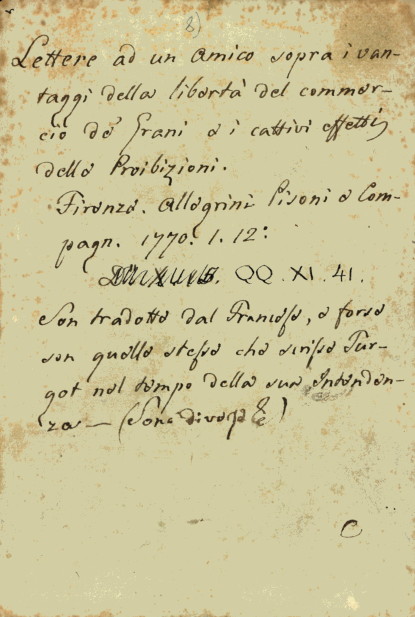 8)
Lettere ad un Amico sopra i van-
taggi della libertà del commer-
cio de' Grani e i cattivi effetti
delle Proibizioni.
Firenze. Allegrini Pisoni e Com-
pagn. 1770. 1. 12:
QQ. XI. 41.
Son tradotte dal Francese, e forse
son quelle stesse che scrisse Tur-
got nel tempo della sua Intenden-
za — (Sono diverse)
C